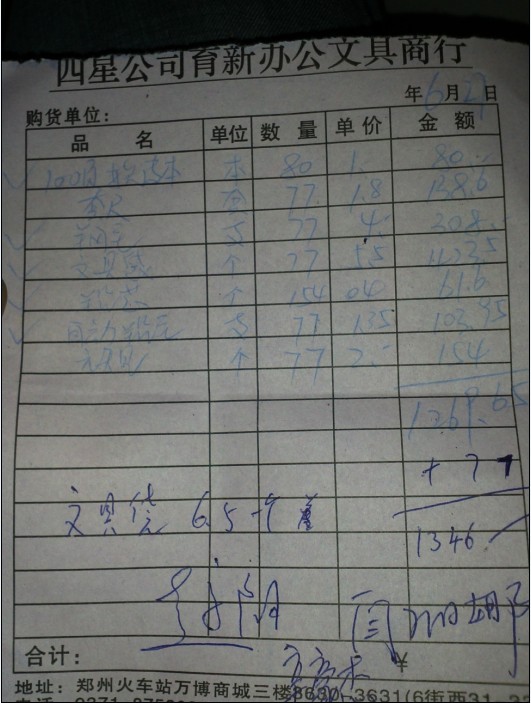 四星公司育新办公文具商行
购货单位： 年6月27日
品 名 单位 数 量 单 价 金 额
100页软皮本 本 80 1. 80.
套尺 套 77 1.8 138.6
钢笔 支 77 4. 308.
文具袋 个 77 5.5 423.5
个 154 0.4 61.6
自动铅笔 支 77 1.35 103.95
个 77 2. 154
1269.65
+ 77
文具袋 6.5 一个
1346.
合计： ¥
地址：郑州火车站万博商城三楼3630-3631(6街西31